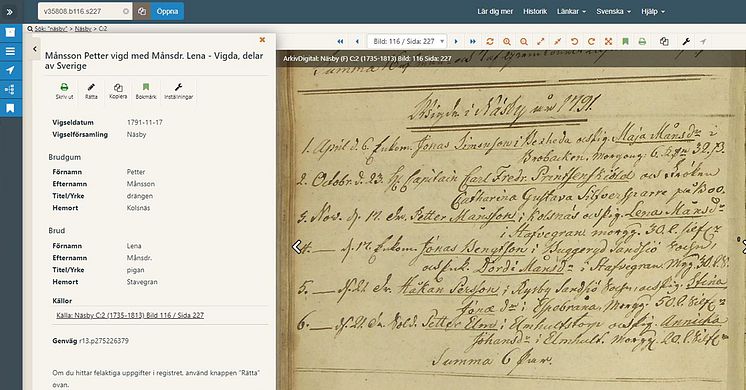 v35808.b116.s227
Öppna
Lär dig mer Historik Länkar Svenska Hjälp
Sök: "näsby" > Näsby > C:2
Månsson Petter vigd med Månsdr. Lena - Vigda, delar
av Sverige
Skriv ut Rätta Kopiera Bokmärk Inställningar
Vigseldatum 1791-11-17
Vigselförsamling Näsby
Brudgum
Förnamn Petter
Efternamn Månsson
Titel/Yrke drängen
Hemort Kolsnäs
Brud
Förnamn Lena
Efternamn Månsdr.
Titel/Yrke pigan
Hemort Stavegran
Källor
Källa: Näsby C:2 (1735-1813) Bild 116 / Sida 227
Genväg r13.p275226379
Om du hittar felaktiga uppgifter i registret, använd knappen "Rätta"
ovan.
Bild: 116 / Sida: 227
ArkivDigital: Näsby (F) C:2 (1735-1813) Bild: 116 Sida: 227
Summa
Wigde i Näsby år 1791.
1. April d. 6. Enkom. Jonas Simonson i Boxheda och pig. Maja Månsdr i
Brobacken. Morgong. 6.
2. Octobr. d. 23. Capitain Carl Fredr. Printzensköld och Fröken
Catharina Gustava Silfversparre på
3. Nov. d. 17. Dr. Petter Månsson i Kolsnäs och pig. Lena Månsdr
i Stafvegran morgg. 30.
4. — d. 17. Enkom. Jonas Bengtsson i Buggeryd Sandsjö
och Dordi Månsdr i Stafvegran Mgg. 30.
5. — d. 21. Dr. Håkan Persson i Ryssby Sandsjö och pig. Stina
Jonæ dr i Morgg. 30.
6. — d. 21. Petter Elm i Elmhultstorp och pig. Annicka
Johansdr i Elmhult. morgg. 20.
Summa 6 Par.